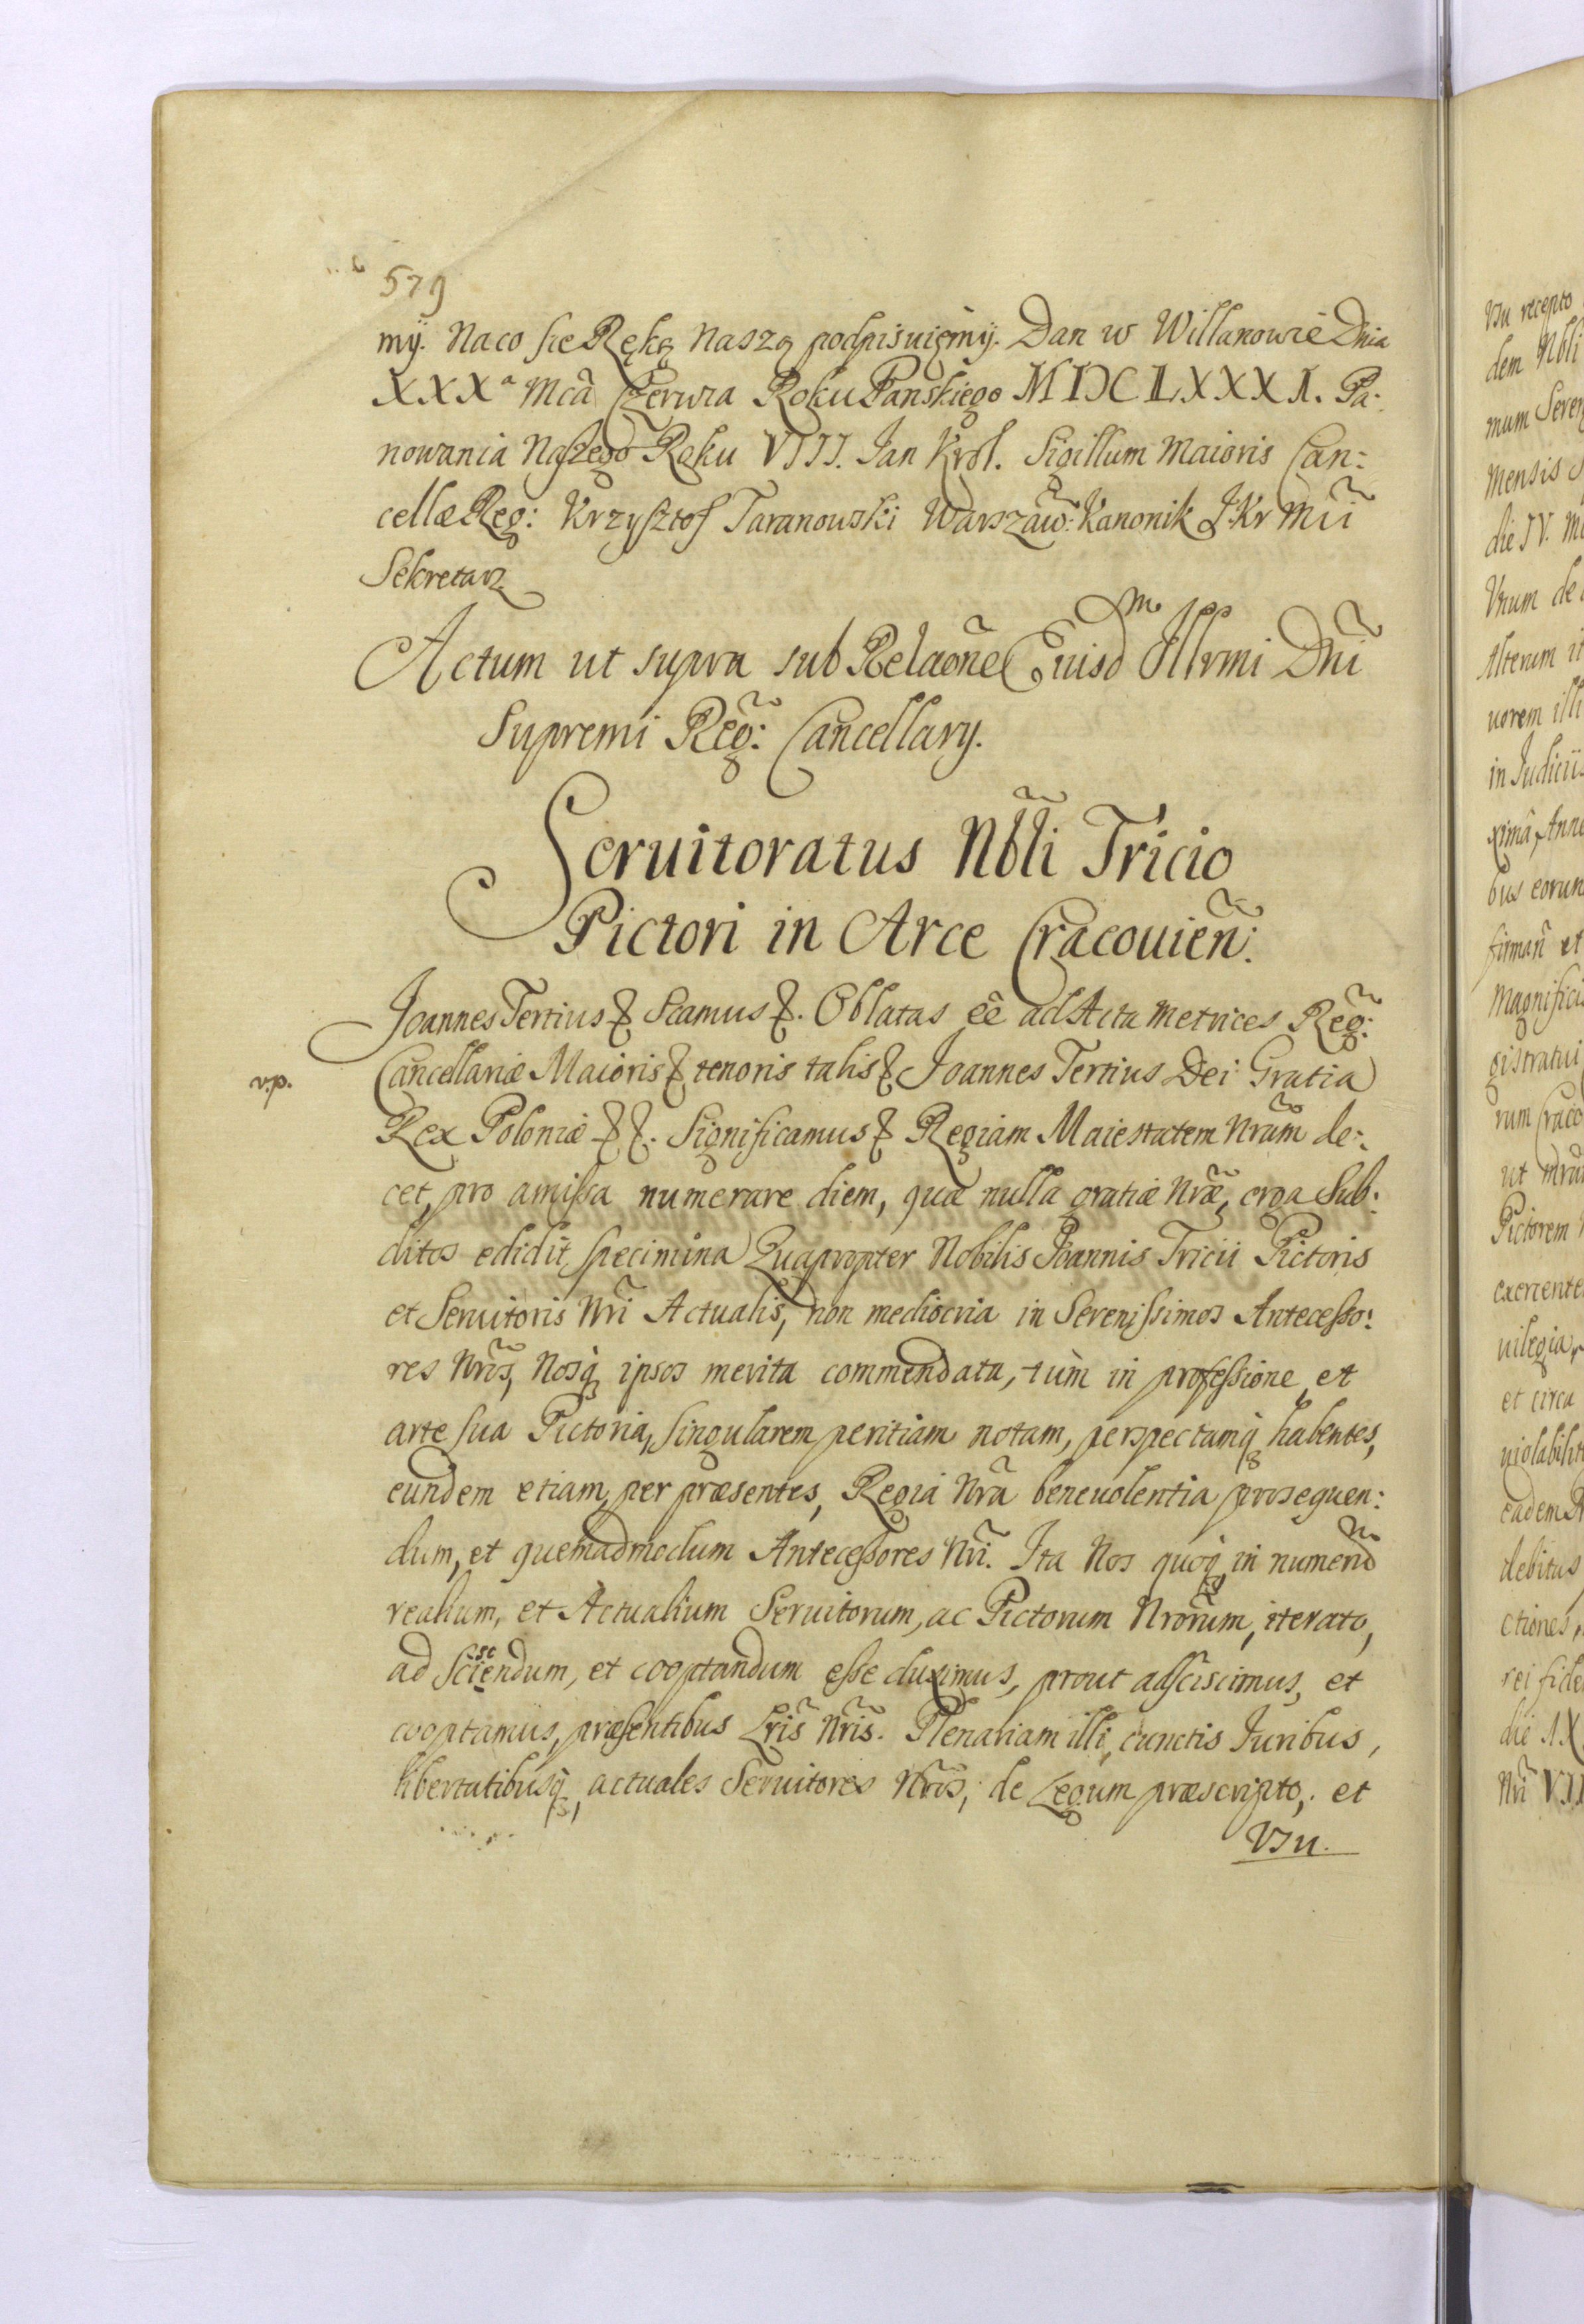 579
mÿ. Naco sie Ręką Naszą podpisuięmÿ. Dan w Willanowie Dnia
XXXᵃ Mcã Czerwca Roku Panskiego MDCLXXXI. Pa:
nowania Naszego Roku VIII. Jan Krol. Sigillum Maioris Can:
cellæ Reg: Krzysztof Taranowski Warszaw: Kanonik J.Kr Mĩi
Sekretarz
Actum ut supra sub Relaõne Eiusdᵐ Illrmi Dñi
Supremi Reg: Cancellarÿ.
Seruitoratus Nbli Tricio
Pictori in Arce Cracouieñ:
Joannes Tertius & Scamus &. Oblatas ẽe ad Acta Metrices Reg:
v.p.
Cancellariæ Maioris & tenoris talis & Joannes Tertius Dei Gratia
Rex Poloniæ &&. Significamus & Regiam Maiestatem Nram de:
cet, pro amissa numerare diem, quæ nulla gratiæ Nræ, erga Sub:
ditos edidit specimina Quapropter Nobilis Joannis Tricii Pictoris
et Seruitoris Nri Actualis, non mediocria in Serenissimos Antecesso:
res Nros, Nosq́ ipsos merita commendata, tùm in professione et
arte sua Pictoria, singularem peritiam notam, perspectamq́ habentes,
eundem etiam per præsentes, Regiá Nrã beneuolentia prosequen:
dum, et quemadmodum Antecessores Nri. Ita Nos quoq́ in numerũ
realium, et Actualium Seruitorum, ac Pictorum Nrorum, iterato,
ad Sciscendum, et cooptandum esse duximus, prout adsciscimus, et
cooptamus, præsentibus Lris Nris. Plenariam illi, cunctis Juribus,
libertatibusq́, actuales Seruitores Nros, de Legum præscripto, et
Vsu.
Vsu recepto
dem Nbli
mum Seren
Mensis
die IV. M
Vnum de
Alterum it
uorem illi
in Judiciis
xima Anno
bus eorun
firmañ et
Magnifici
gistratui
rum Craco
ut
Pictorem
exercente
uilegia
et circa
uiolabilit
eadem
debitas
ctiones,
rei fide
die IX
Nri VII